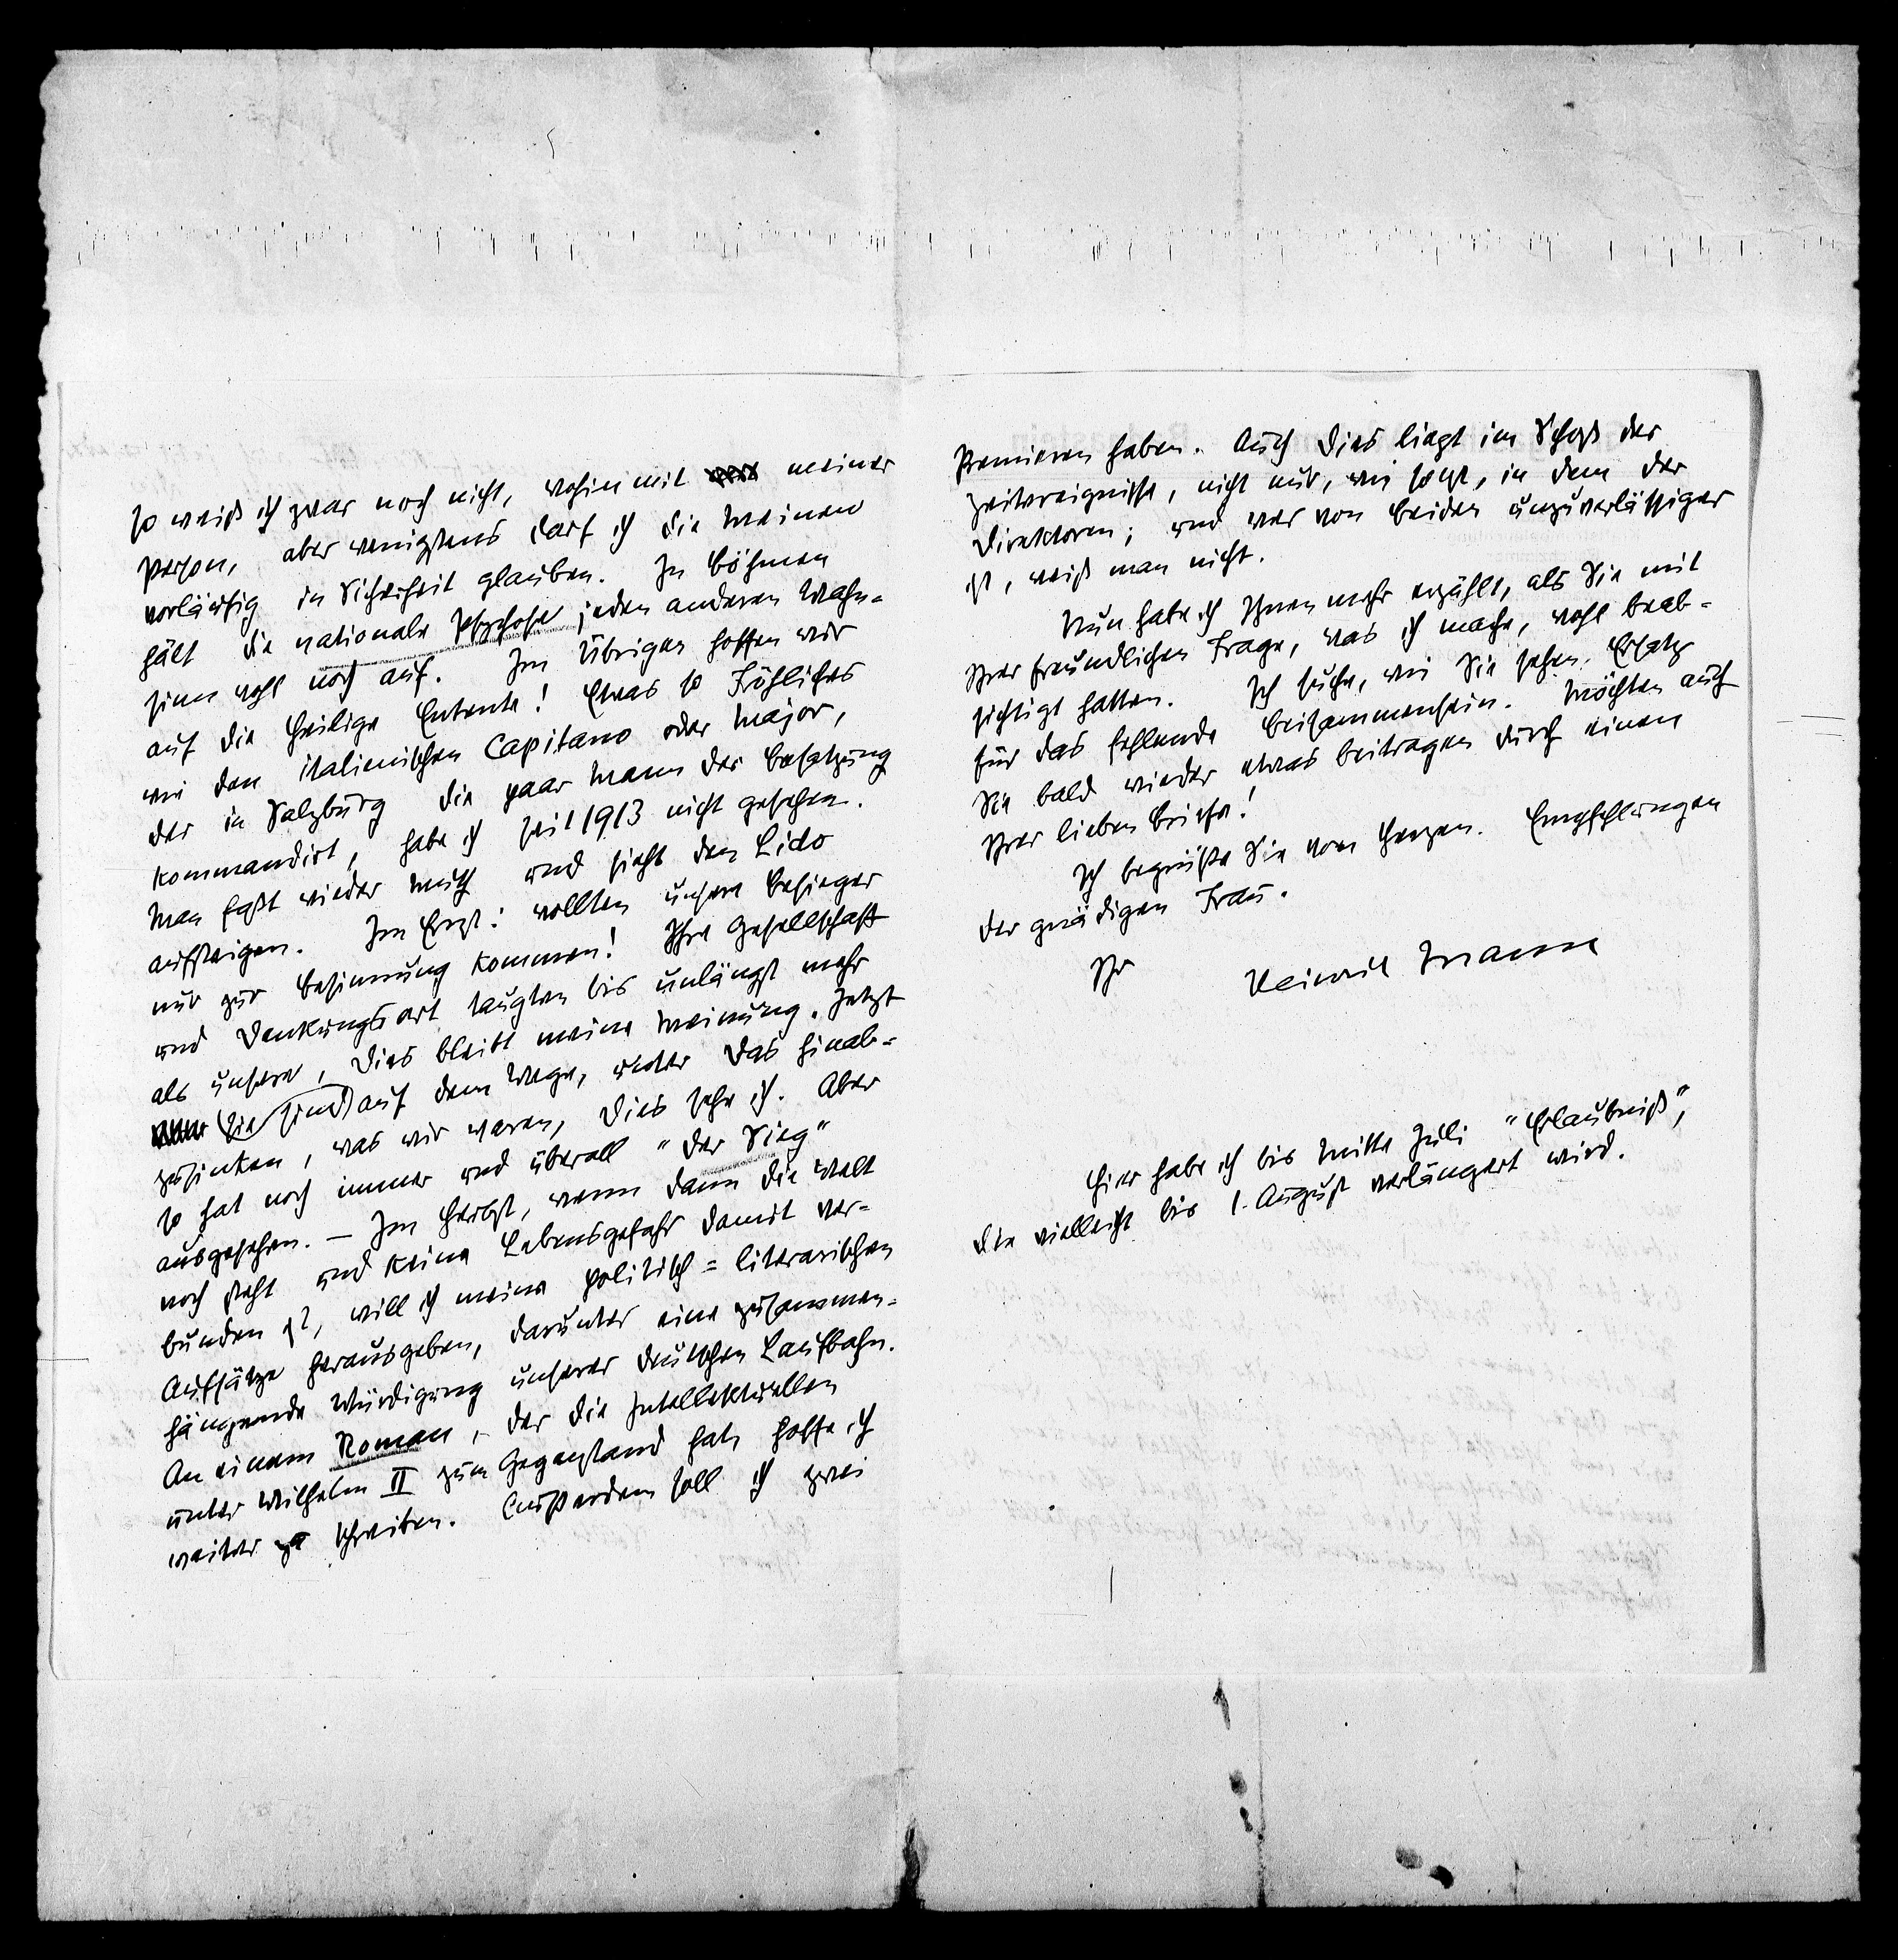 so weiß ich zwar noch nicht, wohin mit meiner
Person, aber wenigstens darf ich die Meinen
vorläufig in Sicherheit glauben. In Böhmen
hält die nationale Psychose jeden anderen Wahn-
sinn wohl noch auf. Im Übrigen hoffen wir
auf die heilige Entente! Etwas so Fröhliches
wie den italienischen Capitano oder Major,
der in Salzburg die paar Mann der Besatzung
kommandirt, habe ich seit 1913 nicht gesehen.
Man faßt wieder Muth und sieht den Lido
aufsteigen. Im Ernst: wollten unsere Besieger
nur zur Besinnung kommen! Ihre Gesellschaft
und Denkungsart taugten bis unlängst mehr
als unsere, dies bleibt meine Meinung. Jetzt
(sie sind) auf dem Wege, unter das hinab-
zusinken, was wir waren, dies sehe ich. Aber
so hat noch immer und überall "der Sieg"
ausgesehen. — Im Herbst, wenn dann die Welt
noch steht und keine Lebensgefahr damit ver-
bunden ist, will ich meine politisch=literarischen
Aufsätze herausgeben, darunter eine zusammen-
hängende Würdigung unserer deutschen Laufbahn.
An einem Roman, der die Intellektuellen
unter Wilhelm II zum Gegenstand hat, hoffe ich
weiter zu schreiben. Außerdem soll ich zwei
Premieren haben. Auch dies liegt im Schoß der
Zeitereignisse, nicht nur, wie sonst, in dem der
Direktoren; und wer von beiden unzuverlässiger
ist, weiß man nicht.
Nun habe ich Ihnen mehr erzählt, als Sie mit
Ihrer freundlichen Frage, was ich mache, wohl beab-
sichtigt hatten. Ich suche, wie Sie sehen, Ersatz
für das fehlende Beisammensein. Möchten auch
Sie bald wieder etwas beitragen durch einen
Ihrer lieben Briefe!
Ich begrüße Sie von Herzen. Empfehlungen
der gnädigen Frau.
Ihr Heinrich Mann
Hier habe ich bis Mitte Juli "Erlaubniß",
die vielleicht bis 1. August verlängert wird.